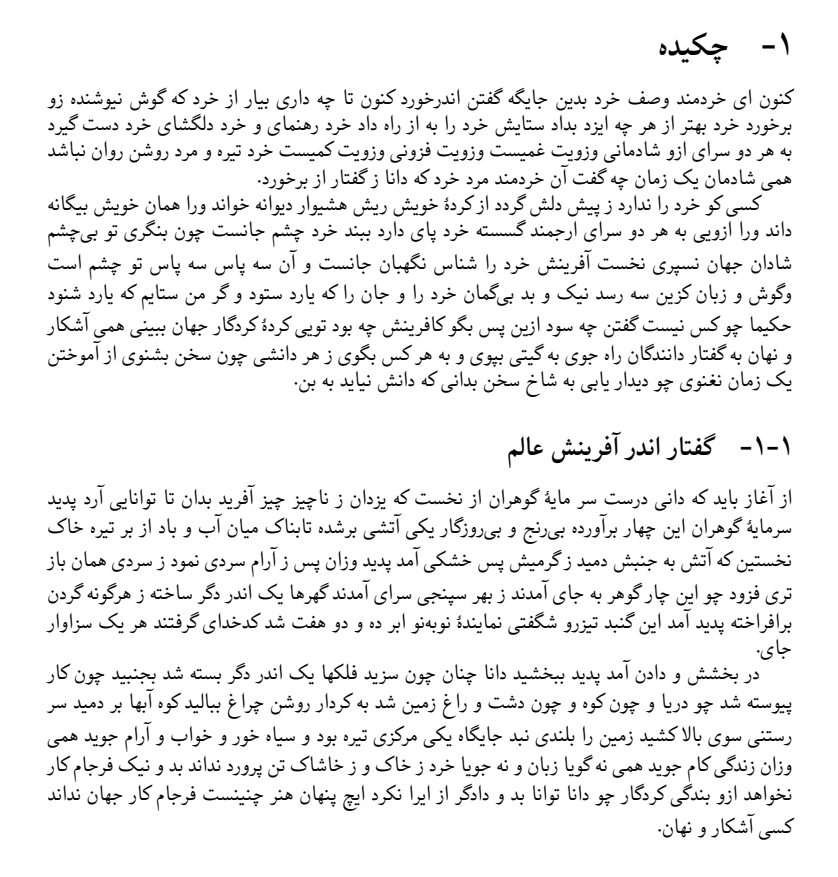 ۱- چکیده
کنون ای خردمند وصف خرد بدین جایگه گفتن اندرخورد کنون تا چه داری بیار از خرد که گوش نیوشنده زو
برخورد خرد بهتر از هر چه ایزد بداد ستایش خرد را به از راه داد خرد رهنمای و خرد دلگشای خرد دست گیرد
به هر دو سرای ازو شادمانی وزویت غمیست وزویت فزونی وزویت کمیست خرد تیره و مرد روشن روان نباشد
همی شادمان یک زمان چه گفت آن خردمند مرد خرد که دانا ز گفتار از برخورد.
کسی کو خرد را ندارد ز پیش دلش گردد از کردهٔ خویش ریش هشیوار دیوانه خواند ورا همان خویش بیگانه
داند ورا ازویی به هر دو سرای ارجمند گسسته خرد پای دارد ببند خرد چشم جانست چون بنگری تو بی‌چشم
شادان جهان نسپری نخست آفرینش خرد را شناس نگهبان جانست و آن سه پاس سه پاس تو چشم است
وگوش و زبان کزین سه رسد نیک و بد بی‌گمان خرد را و جان را که یارد ستود و گر من ستایم که یارد شنود
حکیما چو کس نیست گفتن چه سود ازین پس بگو کافرینش چه بود تویی کردهٔ کردگار جهان ببینی همی آشکار
و نهان به گفتار دانندگان راه جوی به گیتی بپوی و به هر کس بگوی ز هر دانشی چون سخن بشنوی از آموختن
یک زمان نغنوی چو دیدار یابی به شاخ سخن بدانی که دانش نیاید به بن.
۱-۱- گفتار اندر آفرینش عالم
از آغاز باید که دانی درست سر مایهٔ گوهران از نخست که یزدان ز ناچیز چیز آفرید بدان تا توانایی آرد پدید
سرمایهٔ گوهران این چهار برآورده بی‌رنج و بی‌روزگار یکی آتشی برشده تابناک میان آب و باد از بر تیره خاک
نخستین که آتش به جنبش دمید ز گرمیش پس خشکی آمد پدید وزان پس ز آرام سردی نمود ز سردی همان باز
تری فزود چو این چار گوهر به جای آمدند ز بهر سپنجی سرای آمدند گهرها یک اندر دگر ساخته ز هرگونه گردن
برافراخته پدید آمد این گنبد تیزرو شگفتی نمایندهٔ نوبه‌نو ابر ده و دو هفت شد کدخدای گرفتند هر یک سزاوار
جای.
در بخشش و دادن آمد پدید ببخشید دانا چنان چون سزید فلکها یک اندر دگر بسته شد بجنبید چون کار
پیوسته شد چو دریا و چون کوه و چون دشت و راغ زمین شد به کردار روشن چراغ ببالید کوه آبها بر دمید سر
رستنی سوی بالا کشید زمین را بلندی نبد جایگاه یکی مرکزی تیره بود و سیاه خور و خواب و آرام جوید همی
وزان زندگی کام جوید همی نه گویا زبان و نه جویا خرد ز خاک و ز خاشاک تن پرورد نداند بد و نیک فرجام کار
نخواهد ازو بندگی کردگار چو دانا توانا بد و دادگر از ایرا نکرد ایچ پنهان هنر چنینست فرجام کار جهان نداند
کسی آشکار و نهان.